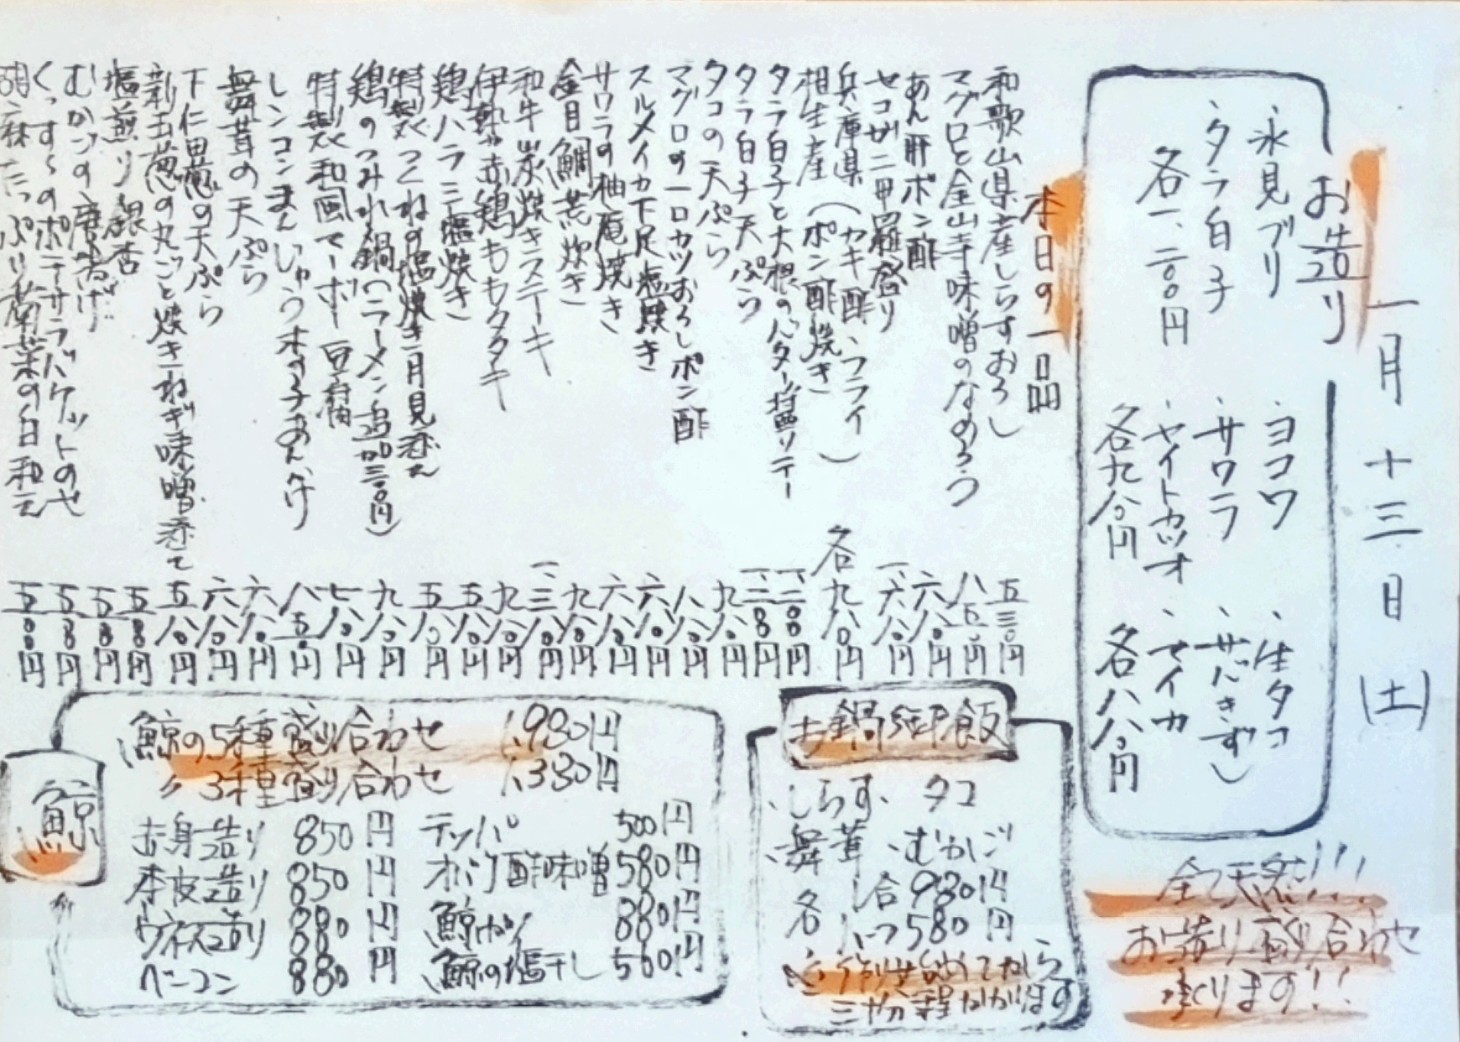 一月十三日(土)
お造り
、氷見ブリ
、タラ白子
各一、二〇〇円
、ヨコワ
、サワラ
、ヤイトカツオ
各九八〇円
、生タコ
、サバ(きずし)
、マイカ
各八八〇円
全て天然!!!
お造り盛り合わせ
承ります!!
本日の一品
和歌山県産しらすおろし 五三〇円
マグロと金山寺味噌のなめろう 八五〇円
あん肝ポン酢 六八〇円
セコガニ甲羅盛り 一、六八〇円
兵庫県相生産(カキ酢、フライ、ポン酢焼き) 各九八〇円
タラ白子と大根のバター醤油ソテー 一、二〇〇円
タラ白子天ぷら
タコの天ぷら 九八〇円
マグロの一口カツおろしポン酢 八八〇円
スルメイカ下足塩焼き 六八〇円
サワラの柚庵焼き 六八〇円
金目鯛荒炊き 九八〇円
和牛炭焼きステーキ
伊勢赤鶏ももタタキ 九八〇円
鶏ハラミ塩焼き 五八〇円
特製つくねの塩焼き 月見添え 五八〇円
鶏のつみれ鍋(ラーメン追加三〇〇円) 九八〇円
特製和風マーボー豆腐 七八〇円
レンコンまんじゅう木の子あんかけ 八五〇円
舞茸の天ぷら 六八〇円
下仁田葱の天ぷら 六八〇円
新玉葱の丸ごと焼きねぎ味噌添えて 五八〇円
塩煎り銀杏
むかごの唐揚げ
くっすーのポテサラバケットのせ
胡麻たっぷり菊菜の白和え
お鍋御飯
、しらす、タコ
、舞茸、むかご
各 一合 980円
ハーフ 580円
三十分程かかります
鯨
鯨の5種盛り合わせ 1,980円
〃 3種盛り合わせ 1,380円
お身造り 850円
本皮造り 850円
ウネス造り 880円
ベーコン 880円
テッパ 500円
オバケ酢味噌 580円
鯨カツ 880円
鯨の塩干し 560円